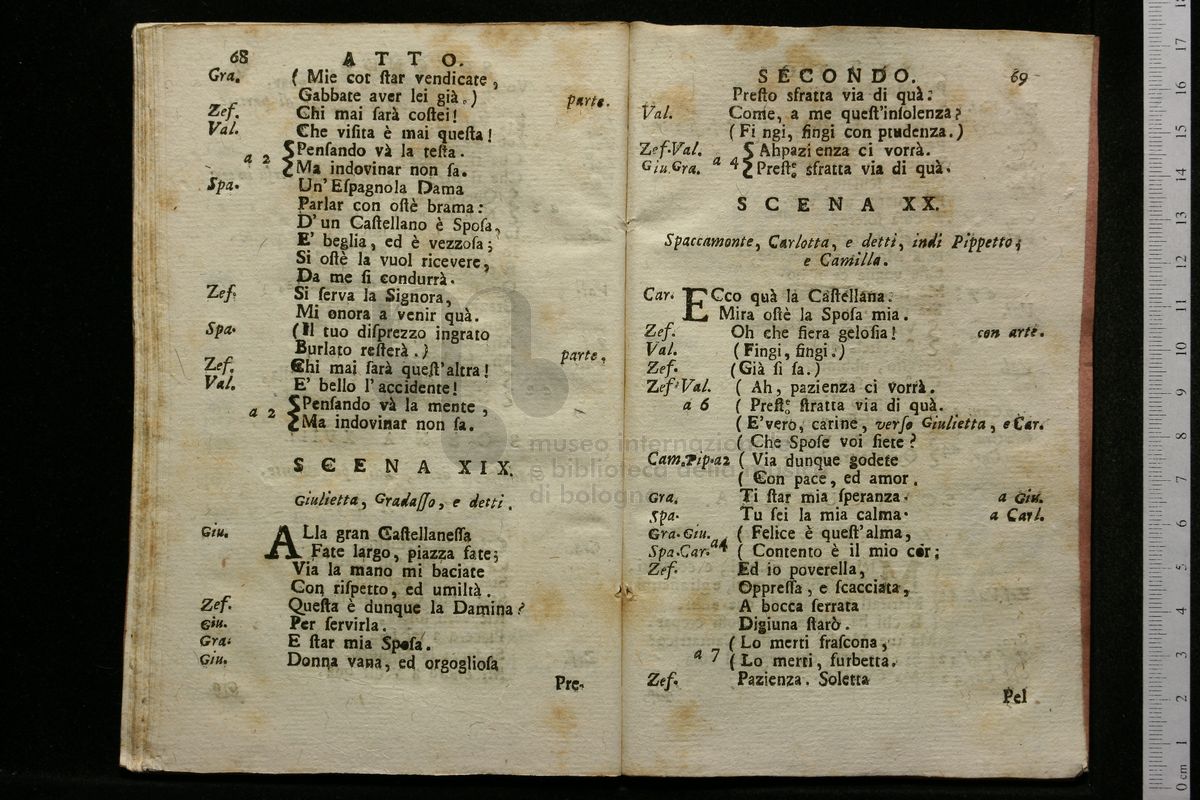 68 ATTO.
Gra. ( Mie cot ſtar vendicate,
Gabbate aver lei già.) parte.
Zef. Chi mai ſarà coſtei!
Val. Che viſita è mai queſta!
a 2 { Penſando và la teſta.
Ma indovinar non ſa.
Spa. Un' Eſpagnola Dama
Parlar con oſtè brama:
D' un Caſtellano è Spoſa,
E' beglia, ed è vezzoſa;
Si oſtè la vuol ricevere,
Da me ſi condurrà.
Zef. Si ſerva la Signora,
Mi onora a venir quà.
Spa. (Il tuo diſprezzo ingrato
Burlato reſterà.) parte,
Zef. Chi mai ſarà queſt'altra!
Val. E' bello l'accidente!
a 2 { Penſando và la mente,
Ma indovinar non ſa.
SCENA XIX.
Giulietta, Gradaſſo, e detti.
Giu. ALla gran Caſtellaneſſa
Fate largo, piazza fate;
Via la mano mi baciate
Con riſpetto, ed umiltà.
Zef. Queſta è dunque la Damina?
Giu. Per ſervirla.
Gra. E ſtar mia Spoſa.
Giu. Donna vana, ed orgoglioſa
Pre-
SECONDO. 69
Preſto sfratta via di quà:
Val. Come, a me queſt'inſolenza?
(Fi ngi, fingi con prudenza.)
Zef.Val. { Ahpazi enza ci vorrà.
Giu.Gra. a 4 { Preſte sfratta via di quà.
SCENA XX.
Spaccamonte, Carlotta, e detti, indi Pippetto;
e Camilla.
Car. ECco quà la Caſtellana.
Mira oſtè la Spoſa mia.
Zef. Oh che fiera geloſia! con arte.
Val. (Fingi, fingi.)
Zef. (Già ſi ſa.)
Zef.Val. ( Ah, pazienza ci vorrà.
a 6 ( Preſte ſtratta via di quà.
( E'vero, carine, verſo Giulietta, e Car.
( Che Spoſe voi ſiete?
Cam.Pip.a2 ( Via dunque godete
( Con pace, ed amor.
Gra. Ti ſtar mia ſperanza. a Giu.
Spa. Tu ſei la mia calma. a Carl.
Gra.Giu. ( Felice è queſt'alma,
Spa.Car. a4 ( Contento è il mio cor;
Zef. Ed io poverella,
Oppreſſa, e ſcacciata,
A bocca ſerrata
Digiuna ſtarò.
(Lo merti fraſcona,
a 7 (Lo merti, furbetta.
Zef. Pazienza. Soletta
Pel
museo internazio
e biblioteca della musica
di bologna